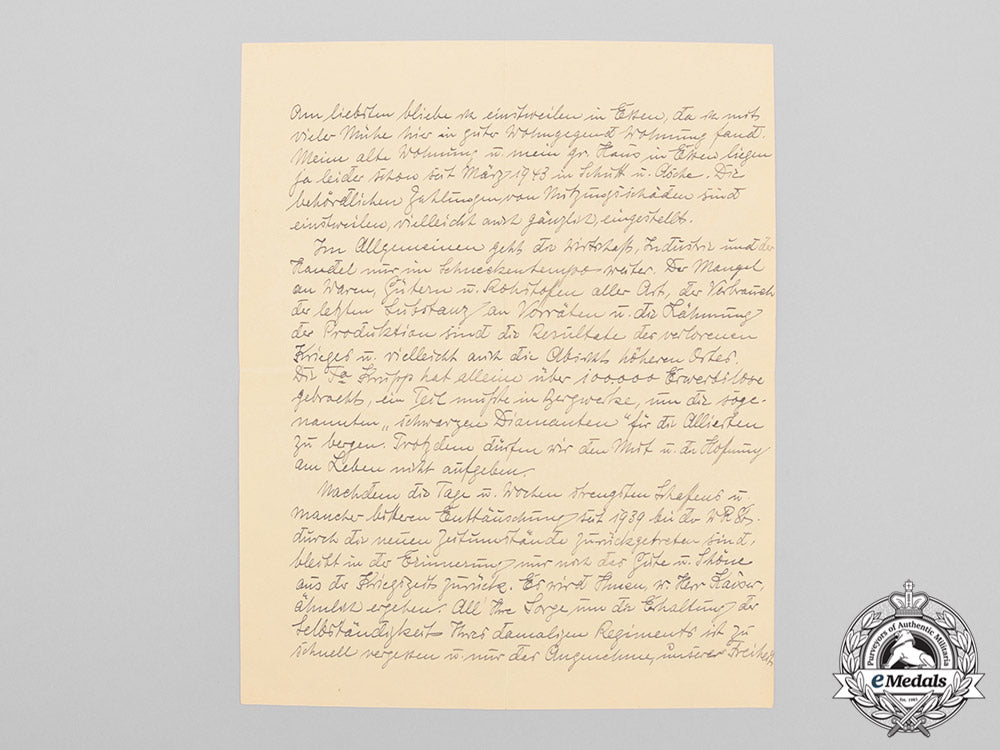 Am liebsten bliebe ich einstweilen in Essen, da ich mit
vieler Mühe hier in guter Wohngegend Wohnung fand.
Meine alte Wohnung u. mein gr. Haus in Essen liegen
ja leider schon seit März 1943 in Schutt u. Asche. Die
behördlichen Zahlungen von Nutzungsschäden sind
einstweilen, vielleicht auch gänzlich, eingestellt.
Im Allgemeinen geht die Wirtschaft, Industrie und der
Handel nur im Schneckentempo weiter. Der Mangel
an Waren, Gütern u. Rohstofen aller Art, der Verbrauch
der letzten Substanz an Vorräten u. die Lähmung
der Produktion sind die Resultate des verlorenen
Krieges u. vielleicht auch die Absicht höheren Ortes.
Die Fa Krupp hat alleine über 100000 Erwerbslose
gebracht, ein Teil mußte in Bergwerke, um die soge-
nannten „schwarzen Diamanten" für die Alliierten
zu bergen. Trotzdem dürfen wir den Mut u. die Hofnung
am Leben nicht aufgeben.
Nachdem die Tage u. Wochen strengsten Schafens u.
mancher bitteren Enttäuschung seit 1939 bei der
durch die neuen Zeitumstände zurückgetreten sind,
bleibt in der Erinnerung nur noch das Gute u. Schöne
aus der Kriegszeit zurück. Es wird Ihnen, Herr Kaiser,
ähnlich ergehen. All Ihre Sorge um die Erhaltung der
Selbständigkeit Ihres damaligen Regiments ist zu
schnell vergessen u. nur das Angenehme, unserer Freiheit
Purveyors of Authentic Militaria
eMedals
Est. 1981